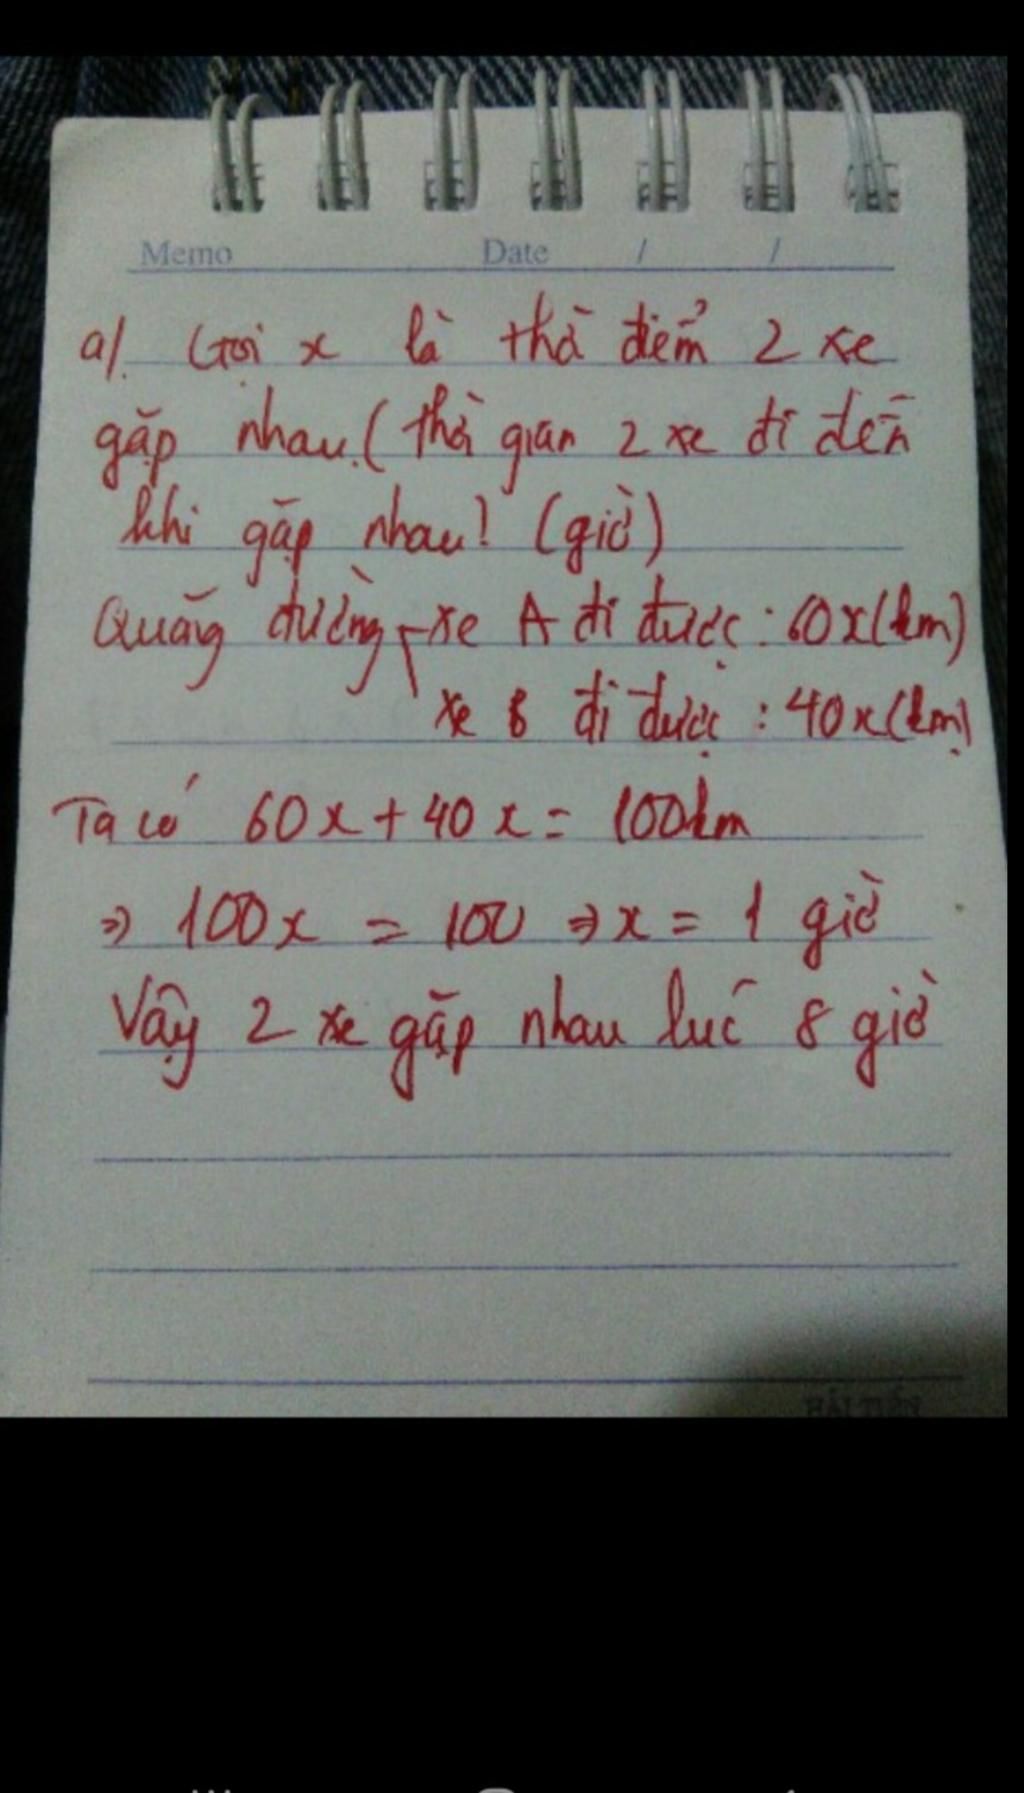 Memo Date / /
a/. Gọi x là thờ điểm 2 xe
gặp nhau. (thời gian 2 xe đi đến
khi gặp nhau) (giờ)
Quãng đường xe A đi được : 60x(km)
xe B đi được : 40x(km)
Ta có 60x + 40x = 100km
=> 100x = 100 => x = 1 giờ
Vậy 2 xe gặp nhau lúc 8 giờ
HẢI TIẾN